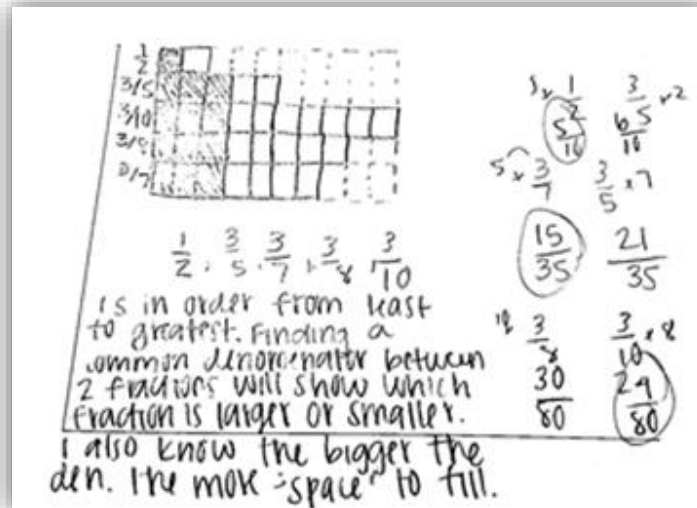 1/2
3/5
3/10
3/8
3/7
1/2, 3/5, 3/7, 3/8, 3/10
is in order from least
to greatest. Finding a
common denomenator between
2 fractions will show which
fraction is larger or smaller.
I also know the bigger the
den. the more "space" to fill.
5x 1/2 3/5 x2
5/10 6/10
5x 3/7 3/5 x7
15/35 21/35
10 3/8 3/10 x8
30/80 24/80